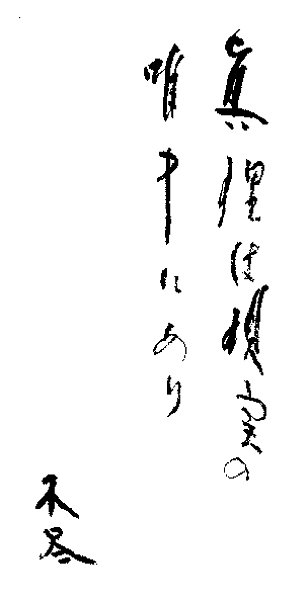 眞理は現実の
唯中にあり
不盡